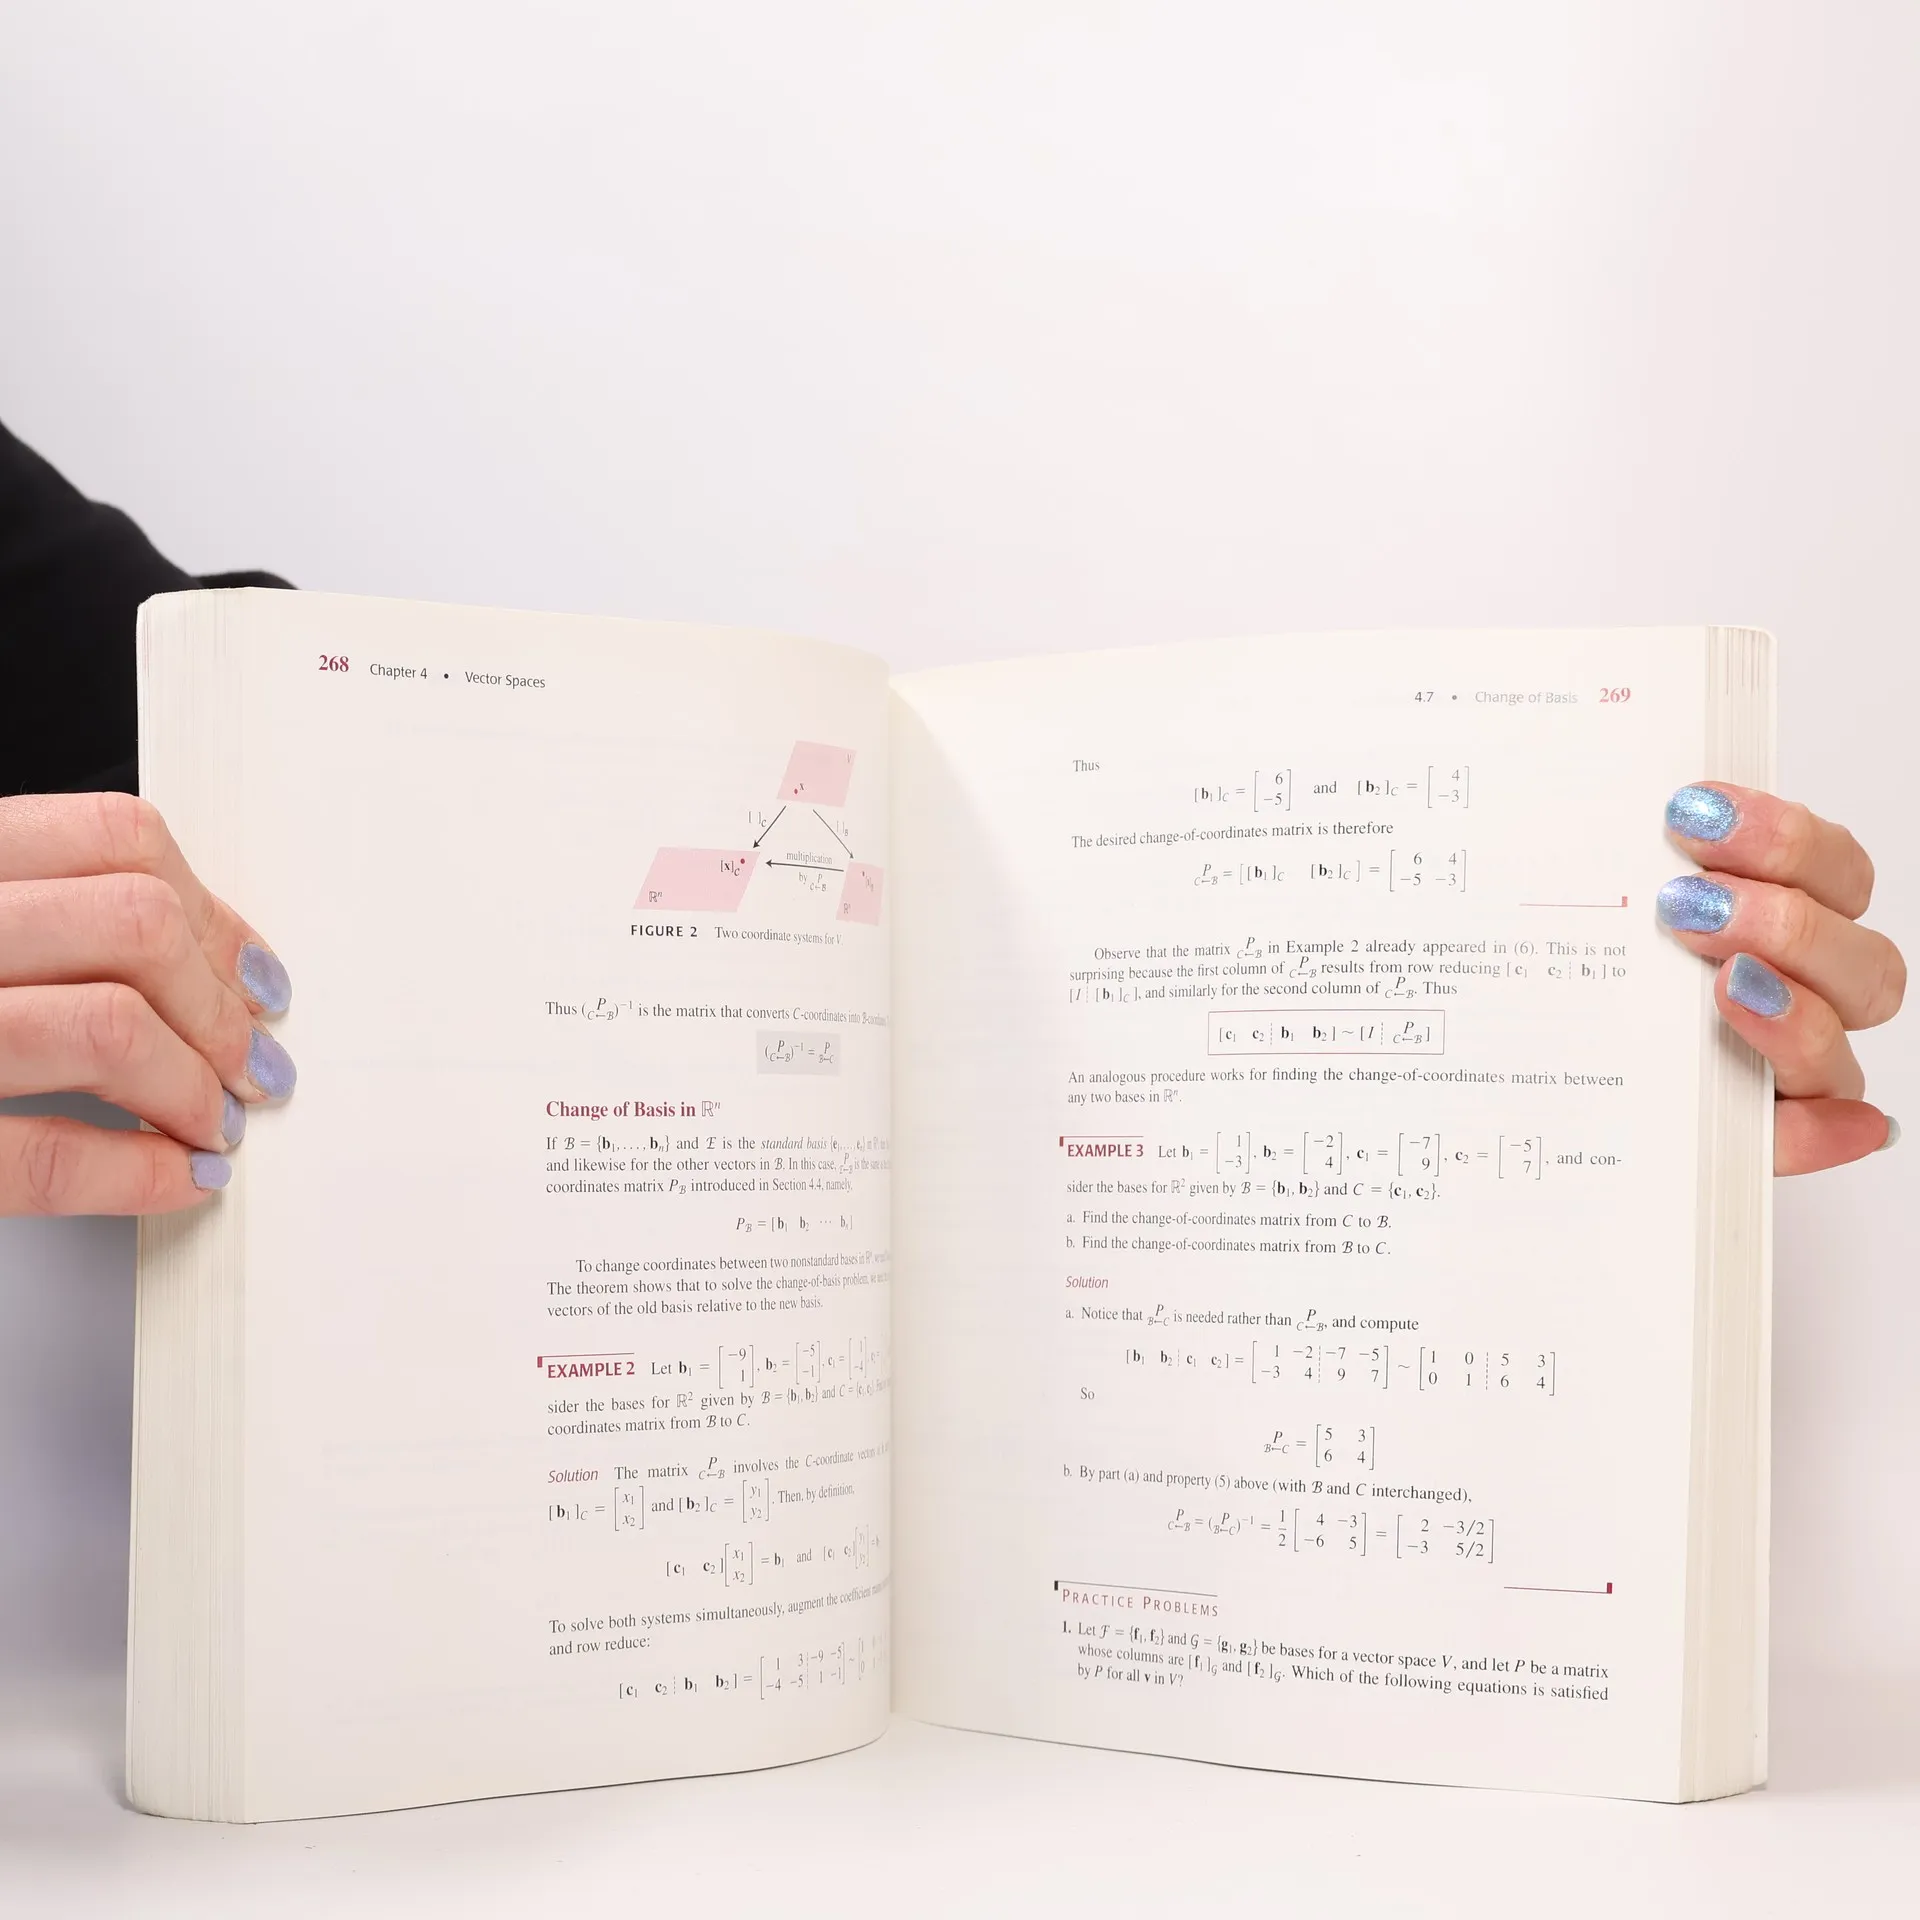 268 Chapter 4 • Vector Spaces
V
x
[ ]C [ ]B
multiplication
[x]C by P C←B [x]B
ℝⁿ ℝⁿ
FIGURE 2 Two coordinate systems for V.
Thus (P C←B)⁻¹ is the matrix that converts C-coordinates into B-coordinates
(P C←B)⁻¹ = P B←C
Change of Basis in ℝⁿ
If B = {b₁, . . . , bₙ} and E is the standard basis {e₁, . . . , eₙ} in ℝⁿ
and likewise for the other vectors in B. In this case, P E←B is the same
coordinates matrix P_B introduced in Section 4.4, namely,
P_B = [b₁ b₂ ⋯ bₙ]
To change coordinates between two nonstandard bases in ℝⁿ, we
The theorem shows that to solve the change-of-basis problem, we
vectors of the old basis relative to the new basis.
EXAMPLE 2 Let b₁ = [−9; 1], b₂ = [−5; −1], c₁ = [1; −4], c₂ =
sider the bases for ℝ² given by B = {b₁, b₂} and C = {c₁, c₂}.
coordinates matrix from B to C.
Solution The matrix P C←B involves the C-coordinate vectors
[b₁]C = [x₁; x₂] and [b₂]C = [y₁; y₂]. Then, by definition,
[c₁ c₂][x₁; x₂] = b₁ and [c₁ c₂][y₁; y₂] = b₂
To solve both systems simultaneously, augment the coefficient
and row reduce:
[c₁ c₂ ¦ b₁ b₂] = [1 3 ¦ −9 −5; −4 −5 ¦ 1 −1] ~
4.7 • Change of Basis 269
Thus
[b₁]C = [6; −5] and [b₂]C = [4; −3]
The desired change-of-coordinates matrix is therefore
P C←B = [[b₁]C [b₂]C] = [6 4; −5 −3]
Observe that the matrix P C←B in Example 2 already appeared in (6). This is not
surprising because the first column of P C←B results from row reducing [c₁ c₂ ¦ b₁] to
[I ¦ [b₁]C], and similarly for the second column of P C←B. Thus
[c₁ c₂ ¦ b₁ b₂] ~ [I ¦ P C←B]
An analogous procedure works for finding the change-of-coordinates matrix between
any two bases in ℝⁿ.
EXAMPLE 3 Let b₁ = [1; −3], b₂ = [−2; 4], c₁ = [−7; 9], c₂ = [−5; 7], and con-
sider the bases for ℝ² given by B = {b₁, b₂} and C = {c₁, c₂}.
a. Find the change-of-coordinates matrix from C to B.
b. Find the change-of-coordinates matrix from B to C.
Solution
a. Notice that P B←C is needed rather than P C←B, and compute
[b₁ b₂ ¦ c₁ c₂] = [1 −2 ¦ −7 −5; −3 4 ¦ 9 7] ~ [1 0 ¦ 5 3; 0 1 ¦ 6 4]
So
P B←C = [5 3; 6 4]
b. By part (a) and property (5) above (with B and C interchanged),
P C←B = (P B←C)⁻¹ = 1/2 [4 −3; −6 5] = [2 −3/2; −3 5/2]
PRACTICE PROBLEMS
1. Let F = {f₁, f₂} and G = {g₁, g₂} be bases for a vector space V, and let P be a matrix
whose columns are [f₁]G and [f₂]G. Which of the following equations is satisfied
by P for all v in V?